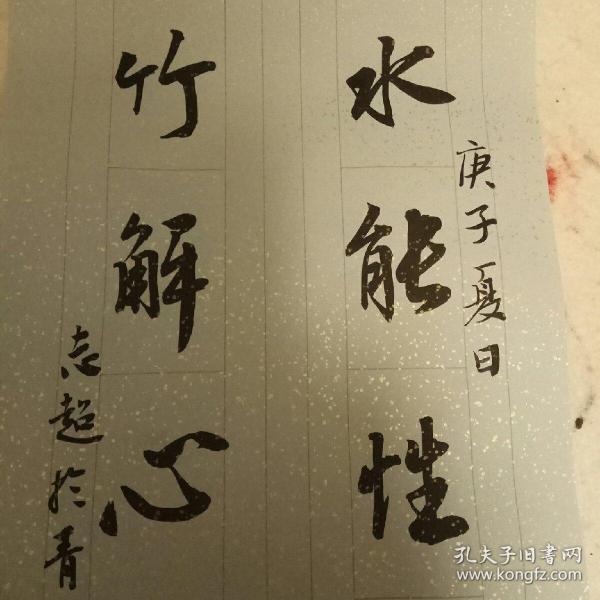 庚子夏日
水能性
竹解心
志超於青
孔夫子旧书网
www.kongfz.com